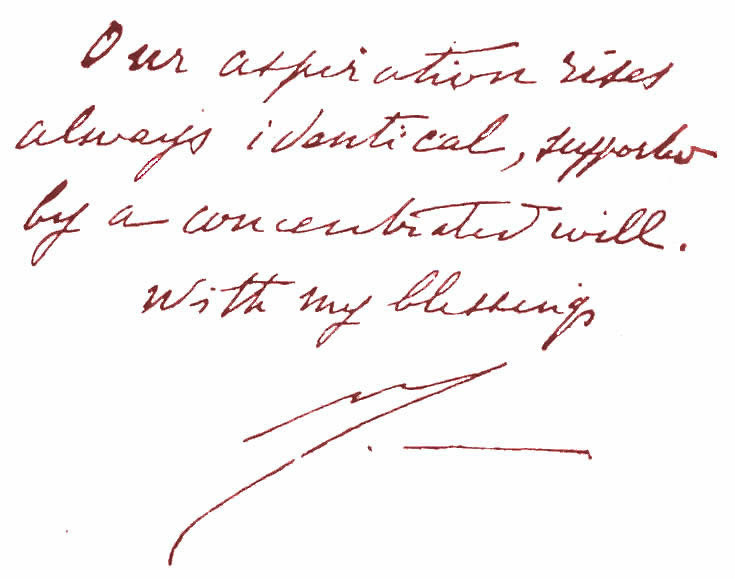 Our aspiration rises
always identical, supported
by a concentrated will.
With my blessings